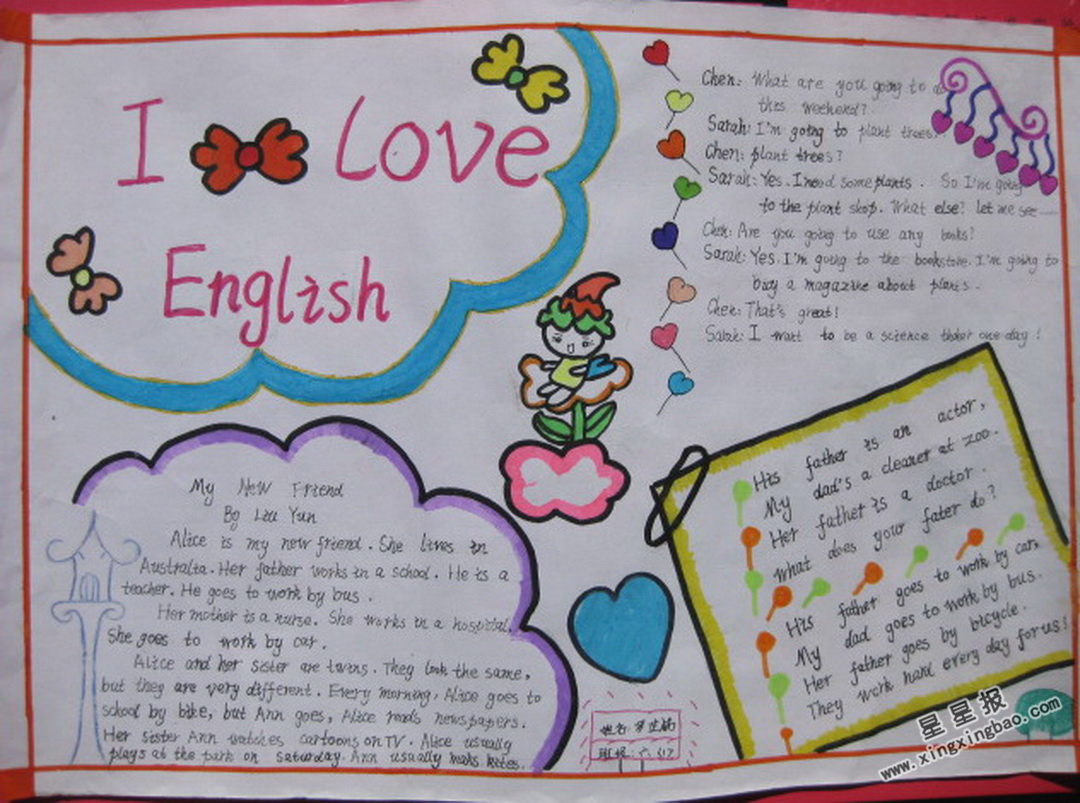 I Love
English
Chen: What are you going to do
this weekend?
Sarah: I'm going to plant trees.
Chen: plant trees?
Sarah: Yes. I need some plants. So I'm going
to the plant shop. What else? let me see......
Chen: Are you going to use any books?
Sarah: Yes. I'm going to the bookstore. I'm going to
buy a magazine about plants.
Chen: That's great!
Sarah: I want to be a science one day!
My New Friend
By Liu Yun
Alice is my new friend. She lives in
Australia. Her father works in a school. He is a
teacher. He goes to work by bus.
Her mother is a nurse. She works in a hospital.
She goes to work by car.
Alice and her sister are twins. They look the same,
but they are very different. Every morning. Alice goes to
school by bike, but Ann goes, Alice reads newspapers.
Her sister Ann watches cartoons on TV. Alice usually
plays at the park on Saturday. Ann usually kites.
His father is an actor,
My dad's a cleaner at zoo.
Her father is a doctor.
what does your fater do?
His father goes to work by car,
My dad goes to work by bus.
Her father goes by bicycle.
They work hard every day for us!
姓名:
班级:六
星星报
www.xingxingbao.com